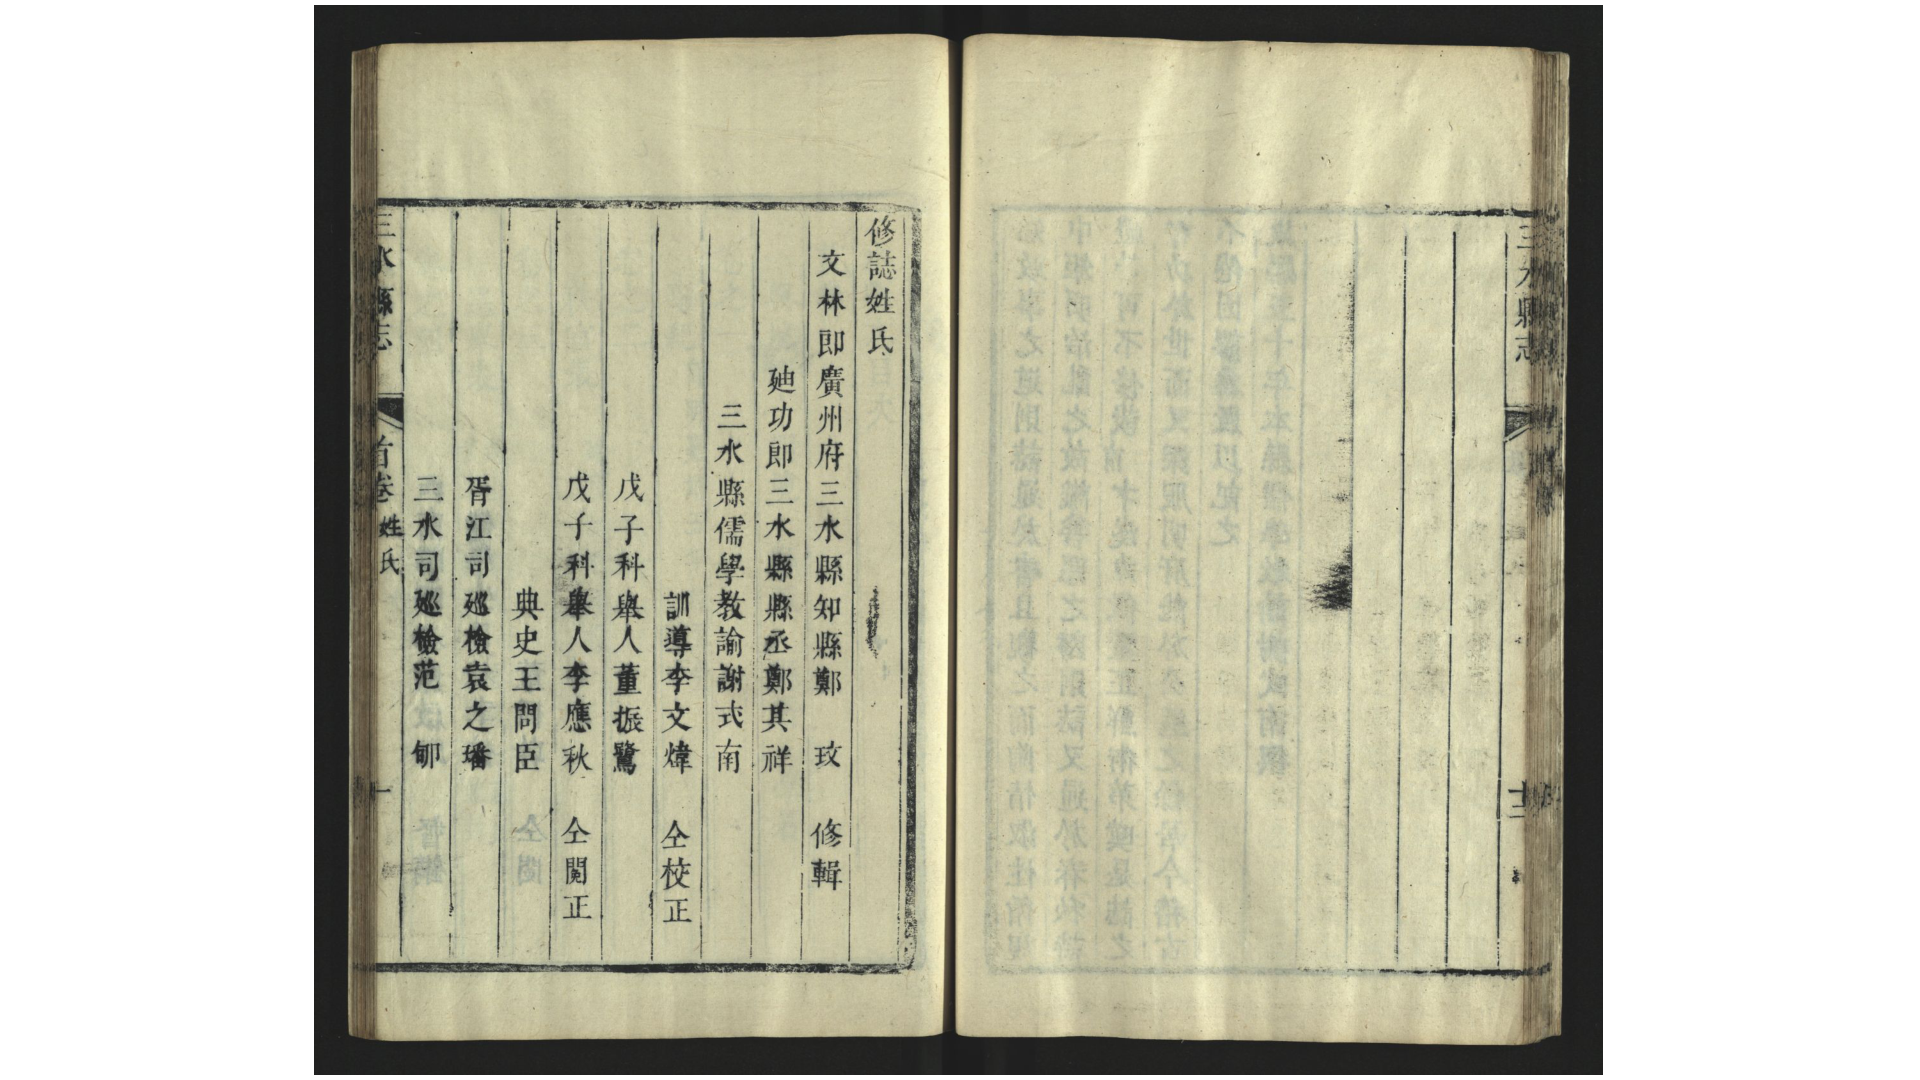 三水縣志
十二
修誌姓氏
文林郎廣州府三水縣知縣鄭 玫 修輯
廸功郎三水縣縣丞鄭其祥
三水縣儒學教諭謝式南
訓導李文煒 仝校正
戊子科舉人董振鷺
戊子科舉人李應秋 仝閱正
典史王問臣
胥江司廵檢袁之璠
三水司廵檢范
三水縣志 首卷 姓氏 一